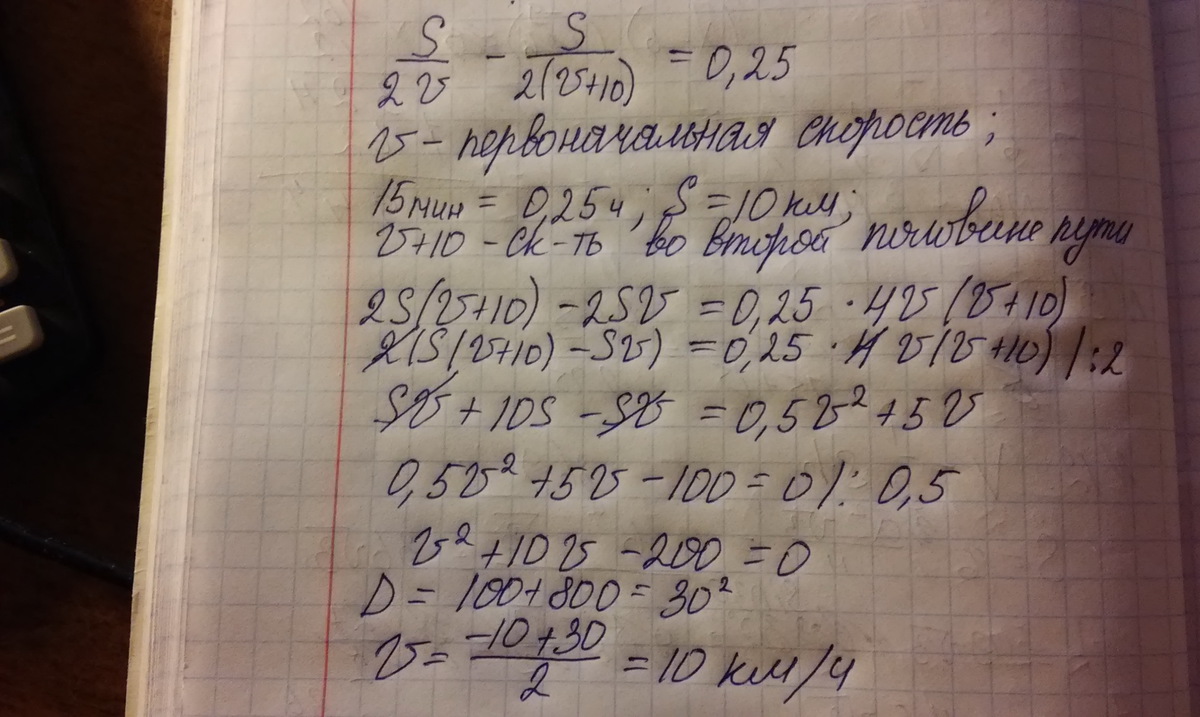 S/2v - S/2(v+10) = 0,25
v - первоначальная скорость;
15мин = 0,25ч; S = 10 км;
v+10 - ск-ть во второй половине пути
2S(v+10) - 2Sv = 0,25 · 4v(v+10)
2(S(v+10) - Sv) = 0,25 · 4 v(v+10) / :2
Sv + 10S - Sv = 0,5v² + 5v
0,5v² + 5v - 100 = 0 /: 0,5
v² + 10v - 200 = 0
D = 100 + 800 = 30²
v = -10 + 30/2 = 10 км/ч